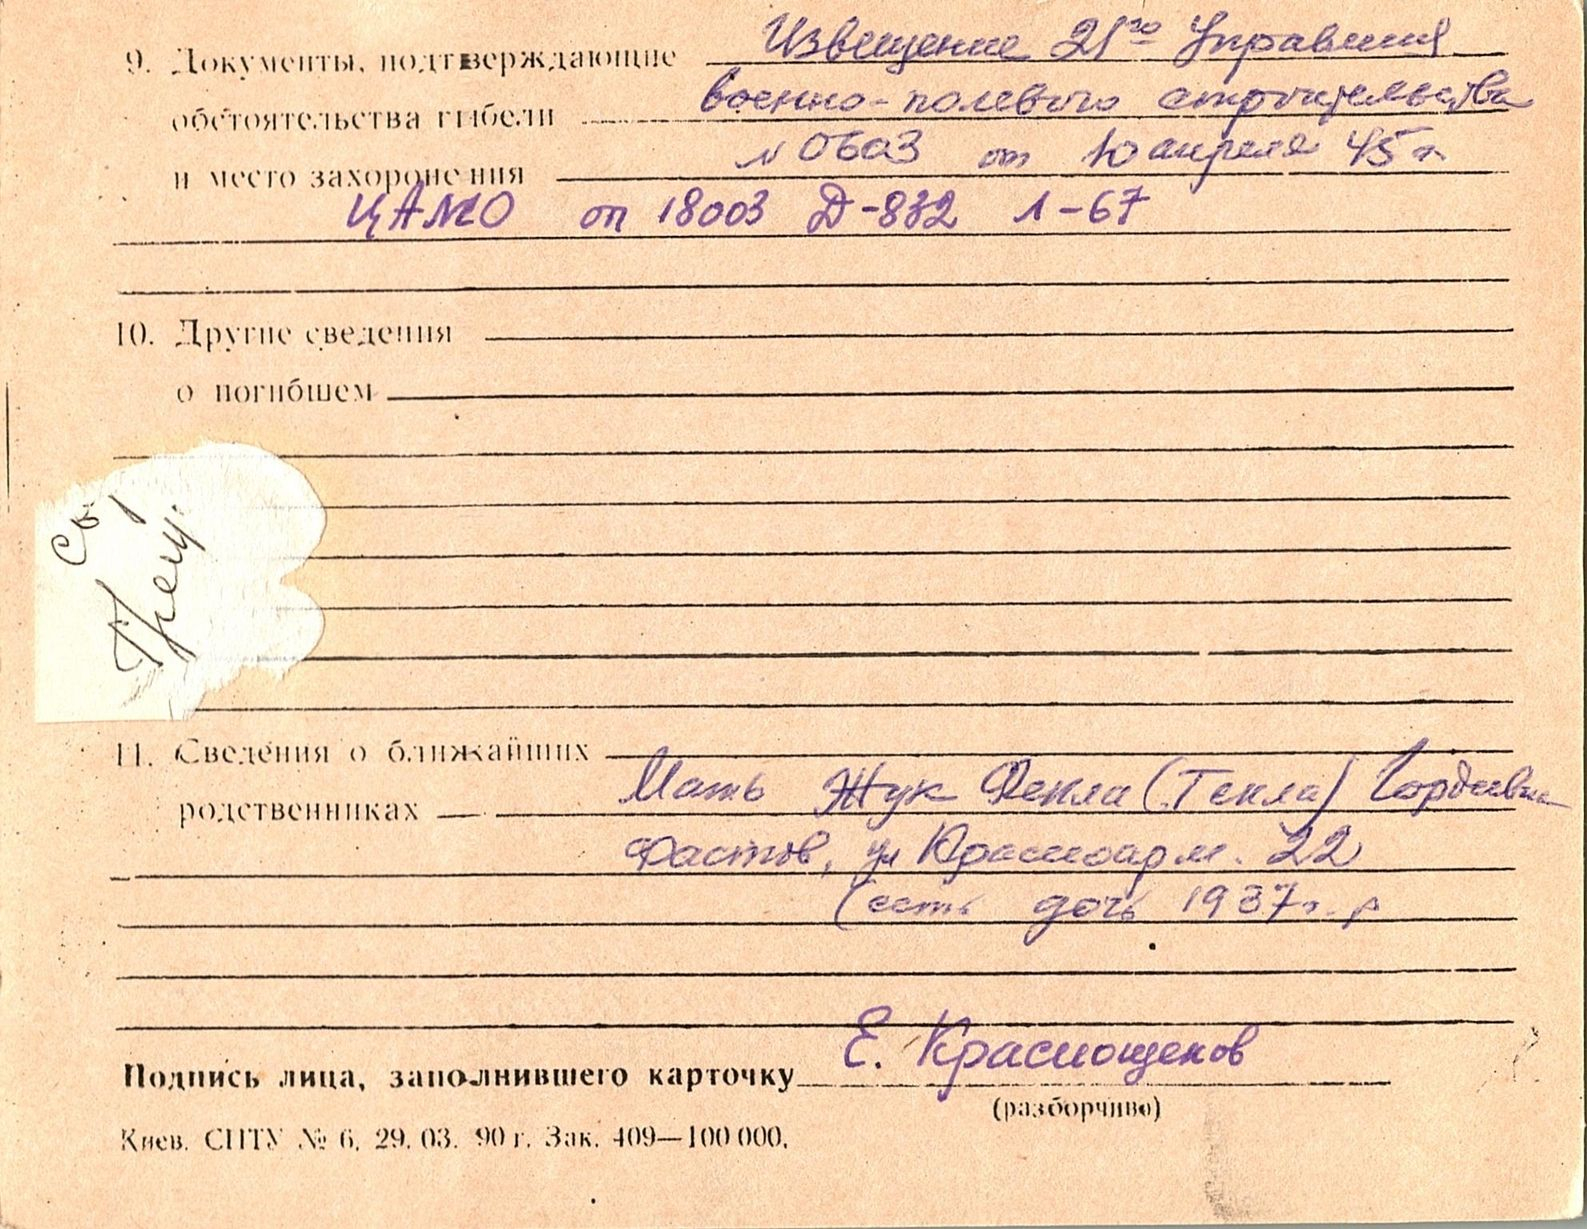 Извещение 21го Управления
9. Документы, подтверждающие
военно-полевого строительства
обстоятельства гибели
№ 0603 от 10 апреля 45 г.
и место захоронения
ЦАМО оп 18003 Д-832 Л-67
10. Другие сведения
о погибшем
Св.
Грец.
11. Сведения о ближайших
родственниках Мать Жук Фекла (Текла) Гордеевн
Фастов, ул Красноарм. 22
(есть дочь 1937 г. р
Подпись лица, заполнившего карточку Е. Краснощеков
(разборчиво)
Киев. СПТУ № 6. 29. 03. 90 г. Зак. 409—100 000.